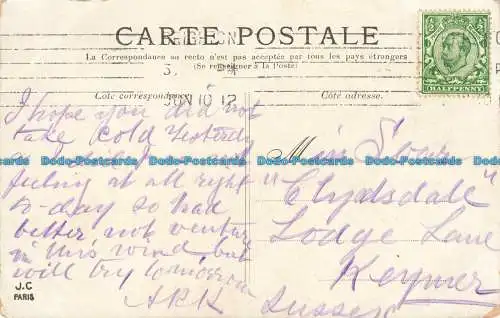 CARTE POSTALE
La Correspondance au recto n'est pas acceptée par tous les pays étrangers
(Se renseigner à la Poste)
JUN 10 12
Côté correspondance
Côté adresse.
HALFPENNY
I hope you did not
take cold yesterday
feeling at all right
to-day so had
better not venture
in this wind but
will try tomorrow
ARK
Miss
"Clydsdale"
Lodge Lane
Keymer
Sussex
J.C
PARIS
Postcards